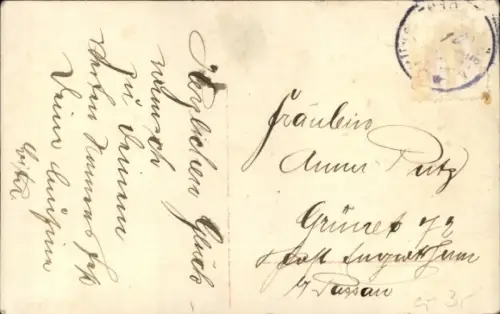 Herzlichen Glück-
wunsch
zu Deinem
werten Namensfest
Deine Cousine
Fräulein
Anna Putz
Grünet 72
Post Engertsham
b/ Passau